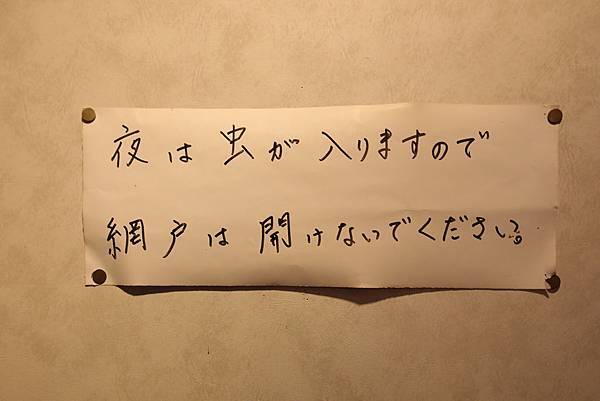 夜は虫が入りますので
網戸は開けないでください。